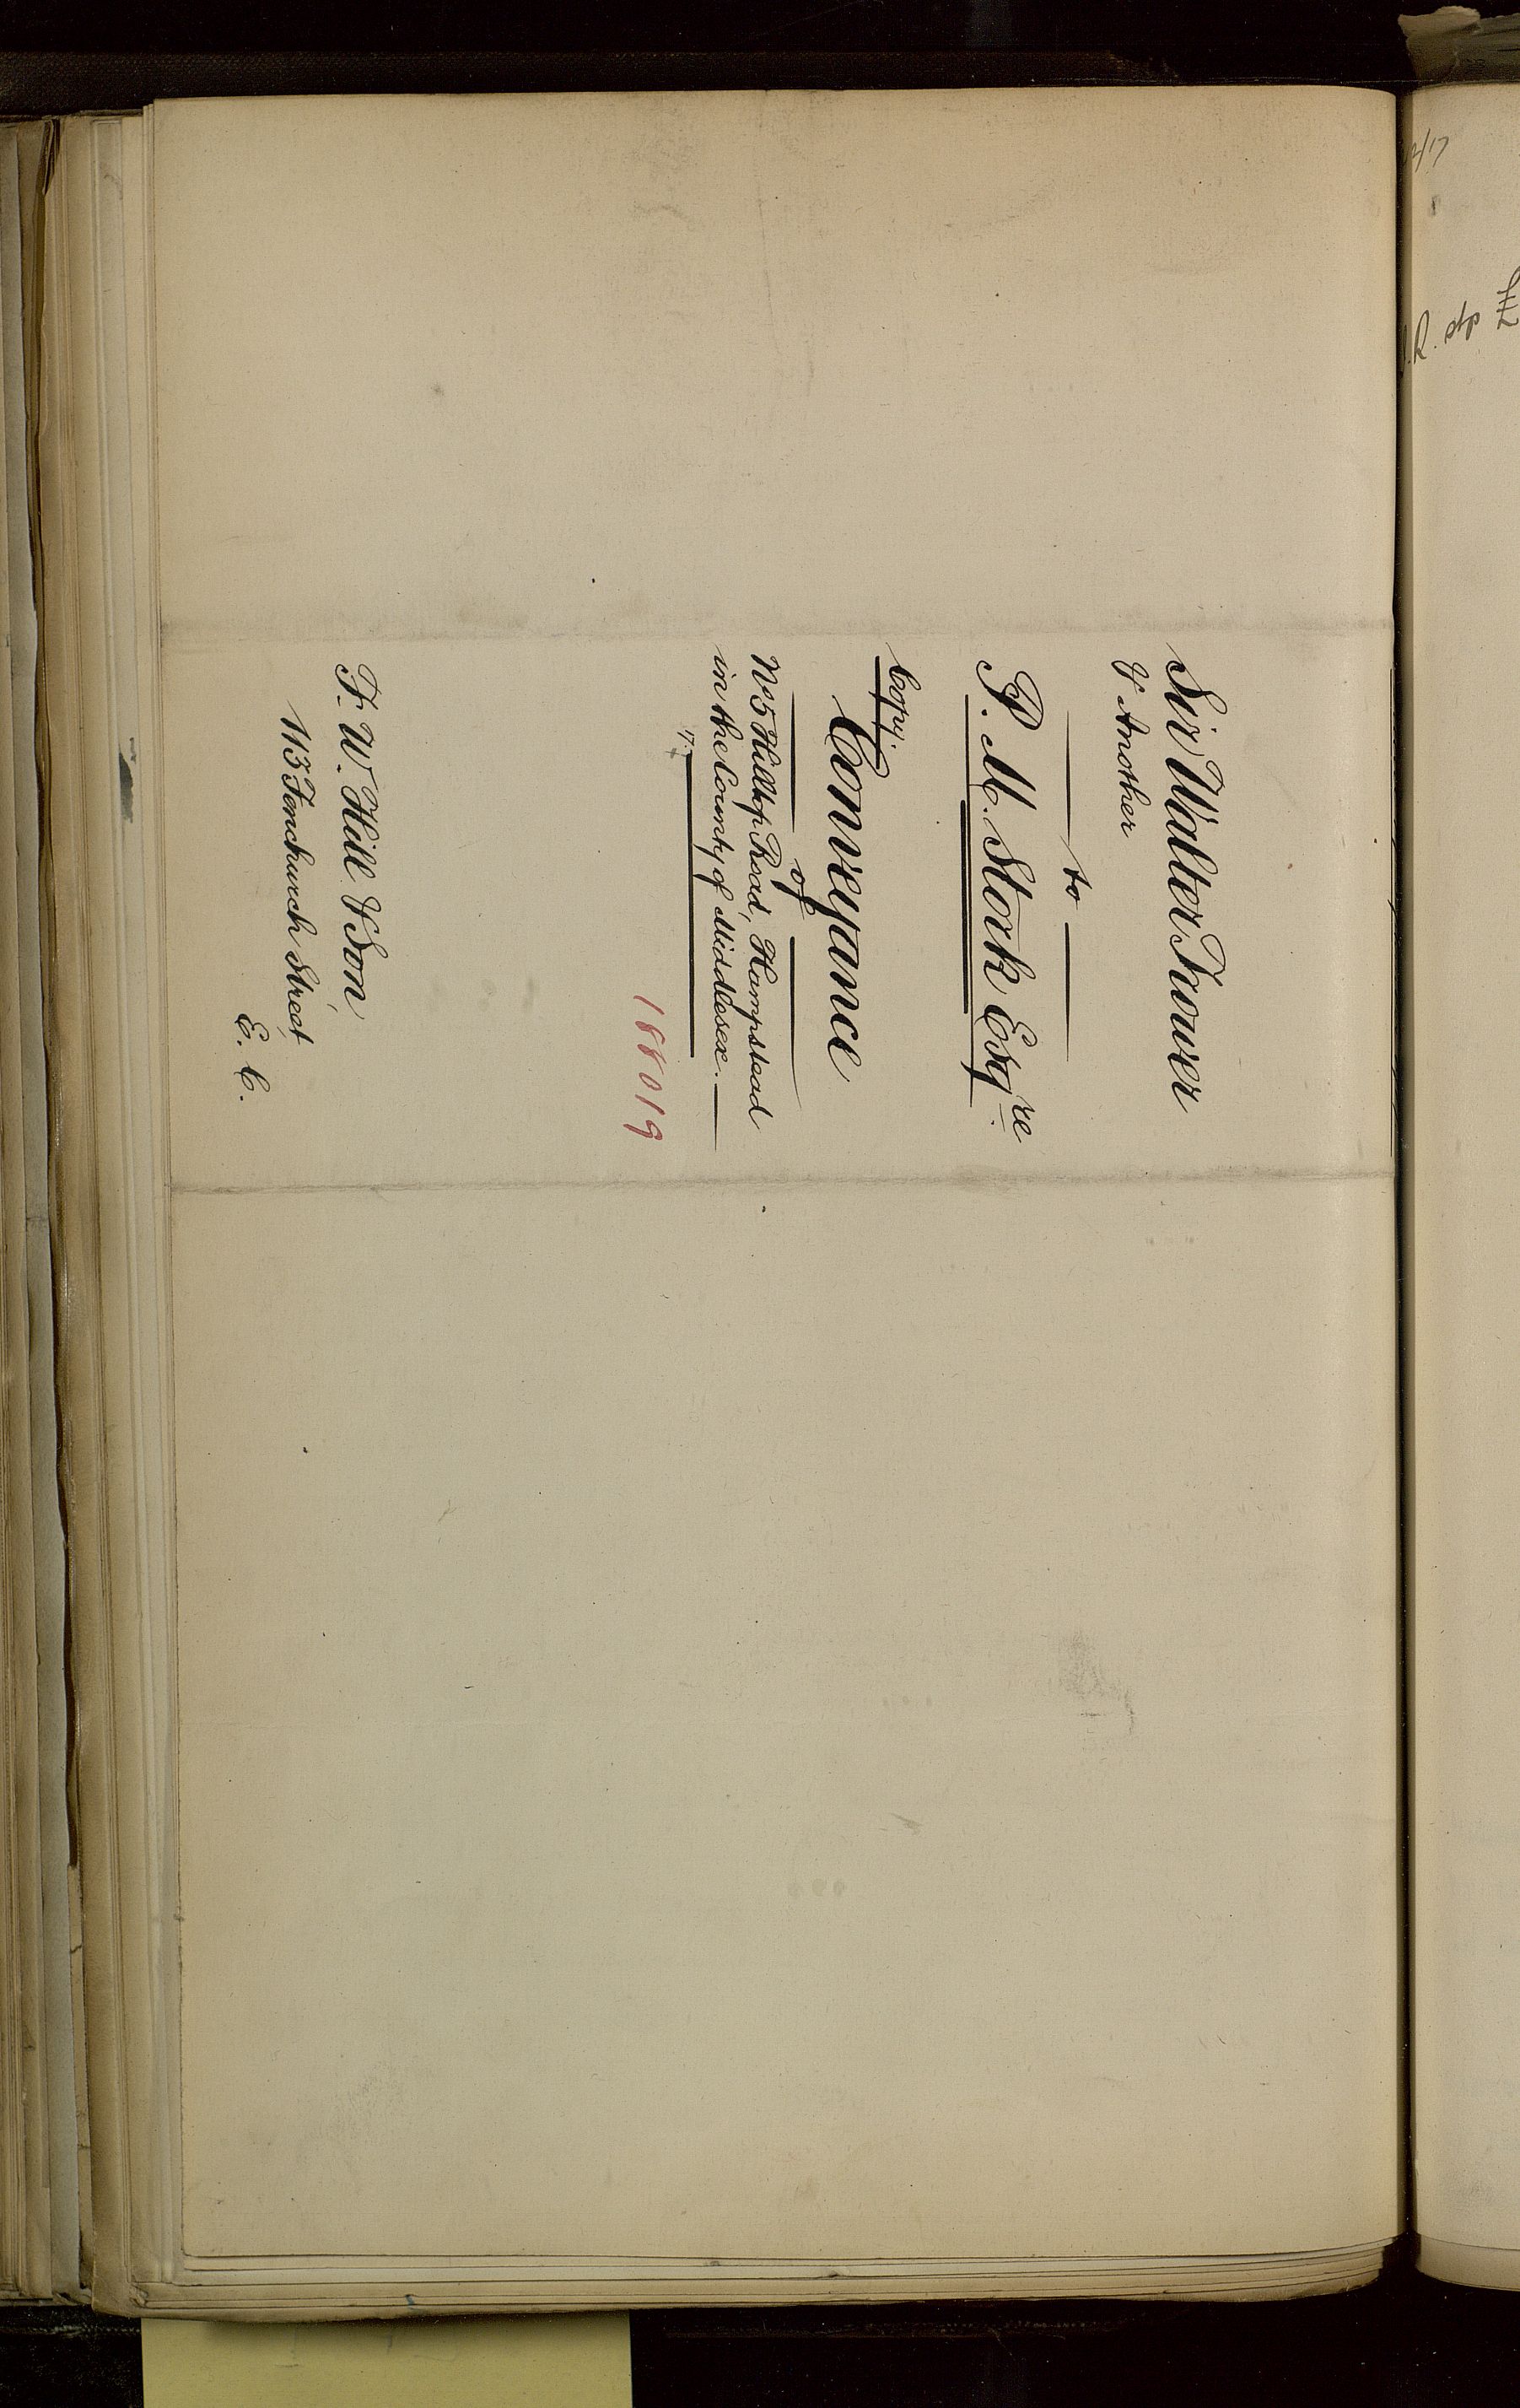 Sir Walter Trower
& Another
to
P. M. Stork Esqre.
Copy.
Conveyance
of
No 5 Hilltop Road, Hampstead
in the County of Middlesex.
188019
F. W. Hill & Son,
113 Fenchurch Street,
E. C.